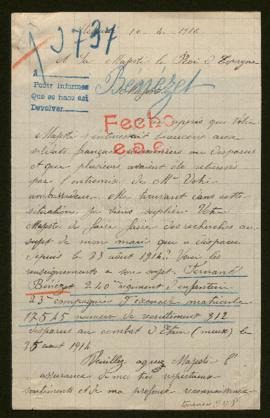 J 737
10 - 4 - 1916
A
Poder informes
Que es haao asi
Devolver
A sa Majesté le Roi d'Espagne
Benezet
Majesté
Fecho
e.a.c.
appris que Votre
Majesté s'intéressait beaucoup aux
soldats français prisonniers ou disparus
et que plusieurs avaient été retrouvés
par l'entremise de Mr Votre
ambassadeur. Me trouvant dans cette
situation je viens supplier Votre
Majesté de faire faire des recherches au
sujet de mon mari qui a disparu
depuis le 25 août 1914. Voici les
renseignements à son sujet. Fernand
Bénézet 240e régiment d'infanterie
23e compagnie matricule
17515 numéro de recrutement 912
disparu au combat d'Etain (meuse) le
25 août 1914
Veuillez agréer Majesté l'
assurance de mes très respectueux
sentiments et de ma profonde reconnaissance